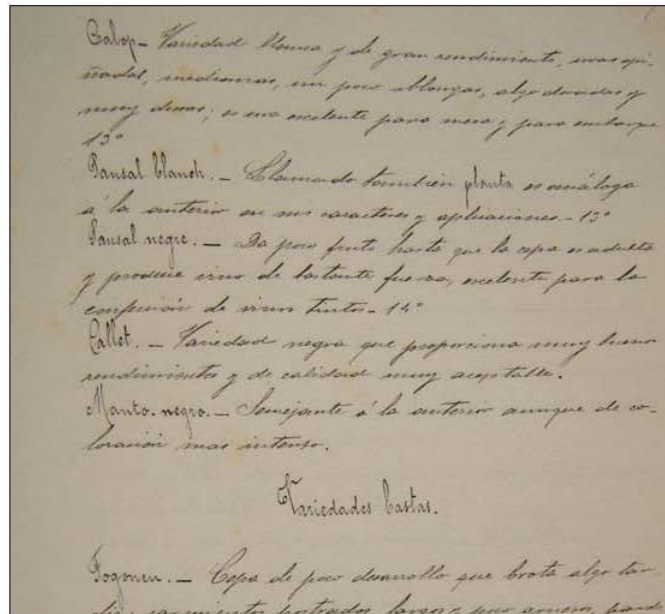 Calop — Variedad blanca y de gran rendimiento, uvas api-
ñadas, medianas, un poco oblongas, algo doradas y
muy duras; es uva excelente para mesa y para embarque
13°
Pansal blanch. — Llamado también planta es análoga
á la anterior en sus caracteres y aplicaciones. — 13°
Pansal negre. — Da poco fruto hasta que la cepa es adulta
y produce vino de bastante fuerza, excelente para la
confección de vinos tintos — 14°
Callet. — Variedad negra que proporciona muy buenos
rendimientos y de calidad muy aceptable.
Manto. negro. — Semejante á la anterior aunque de co-
loración mas intensa.
Variedades bastas.
Fogoneu. — Cepa de poco desarrollo que brota algo tar-
sarmientos postrados largos poco